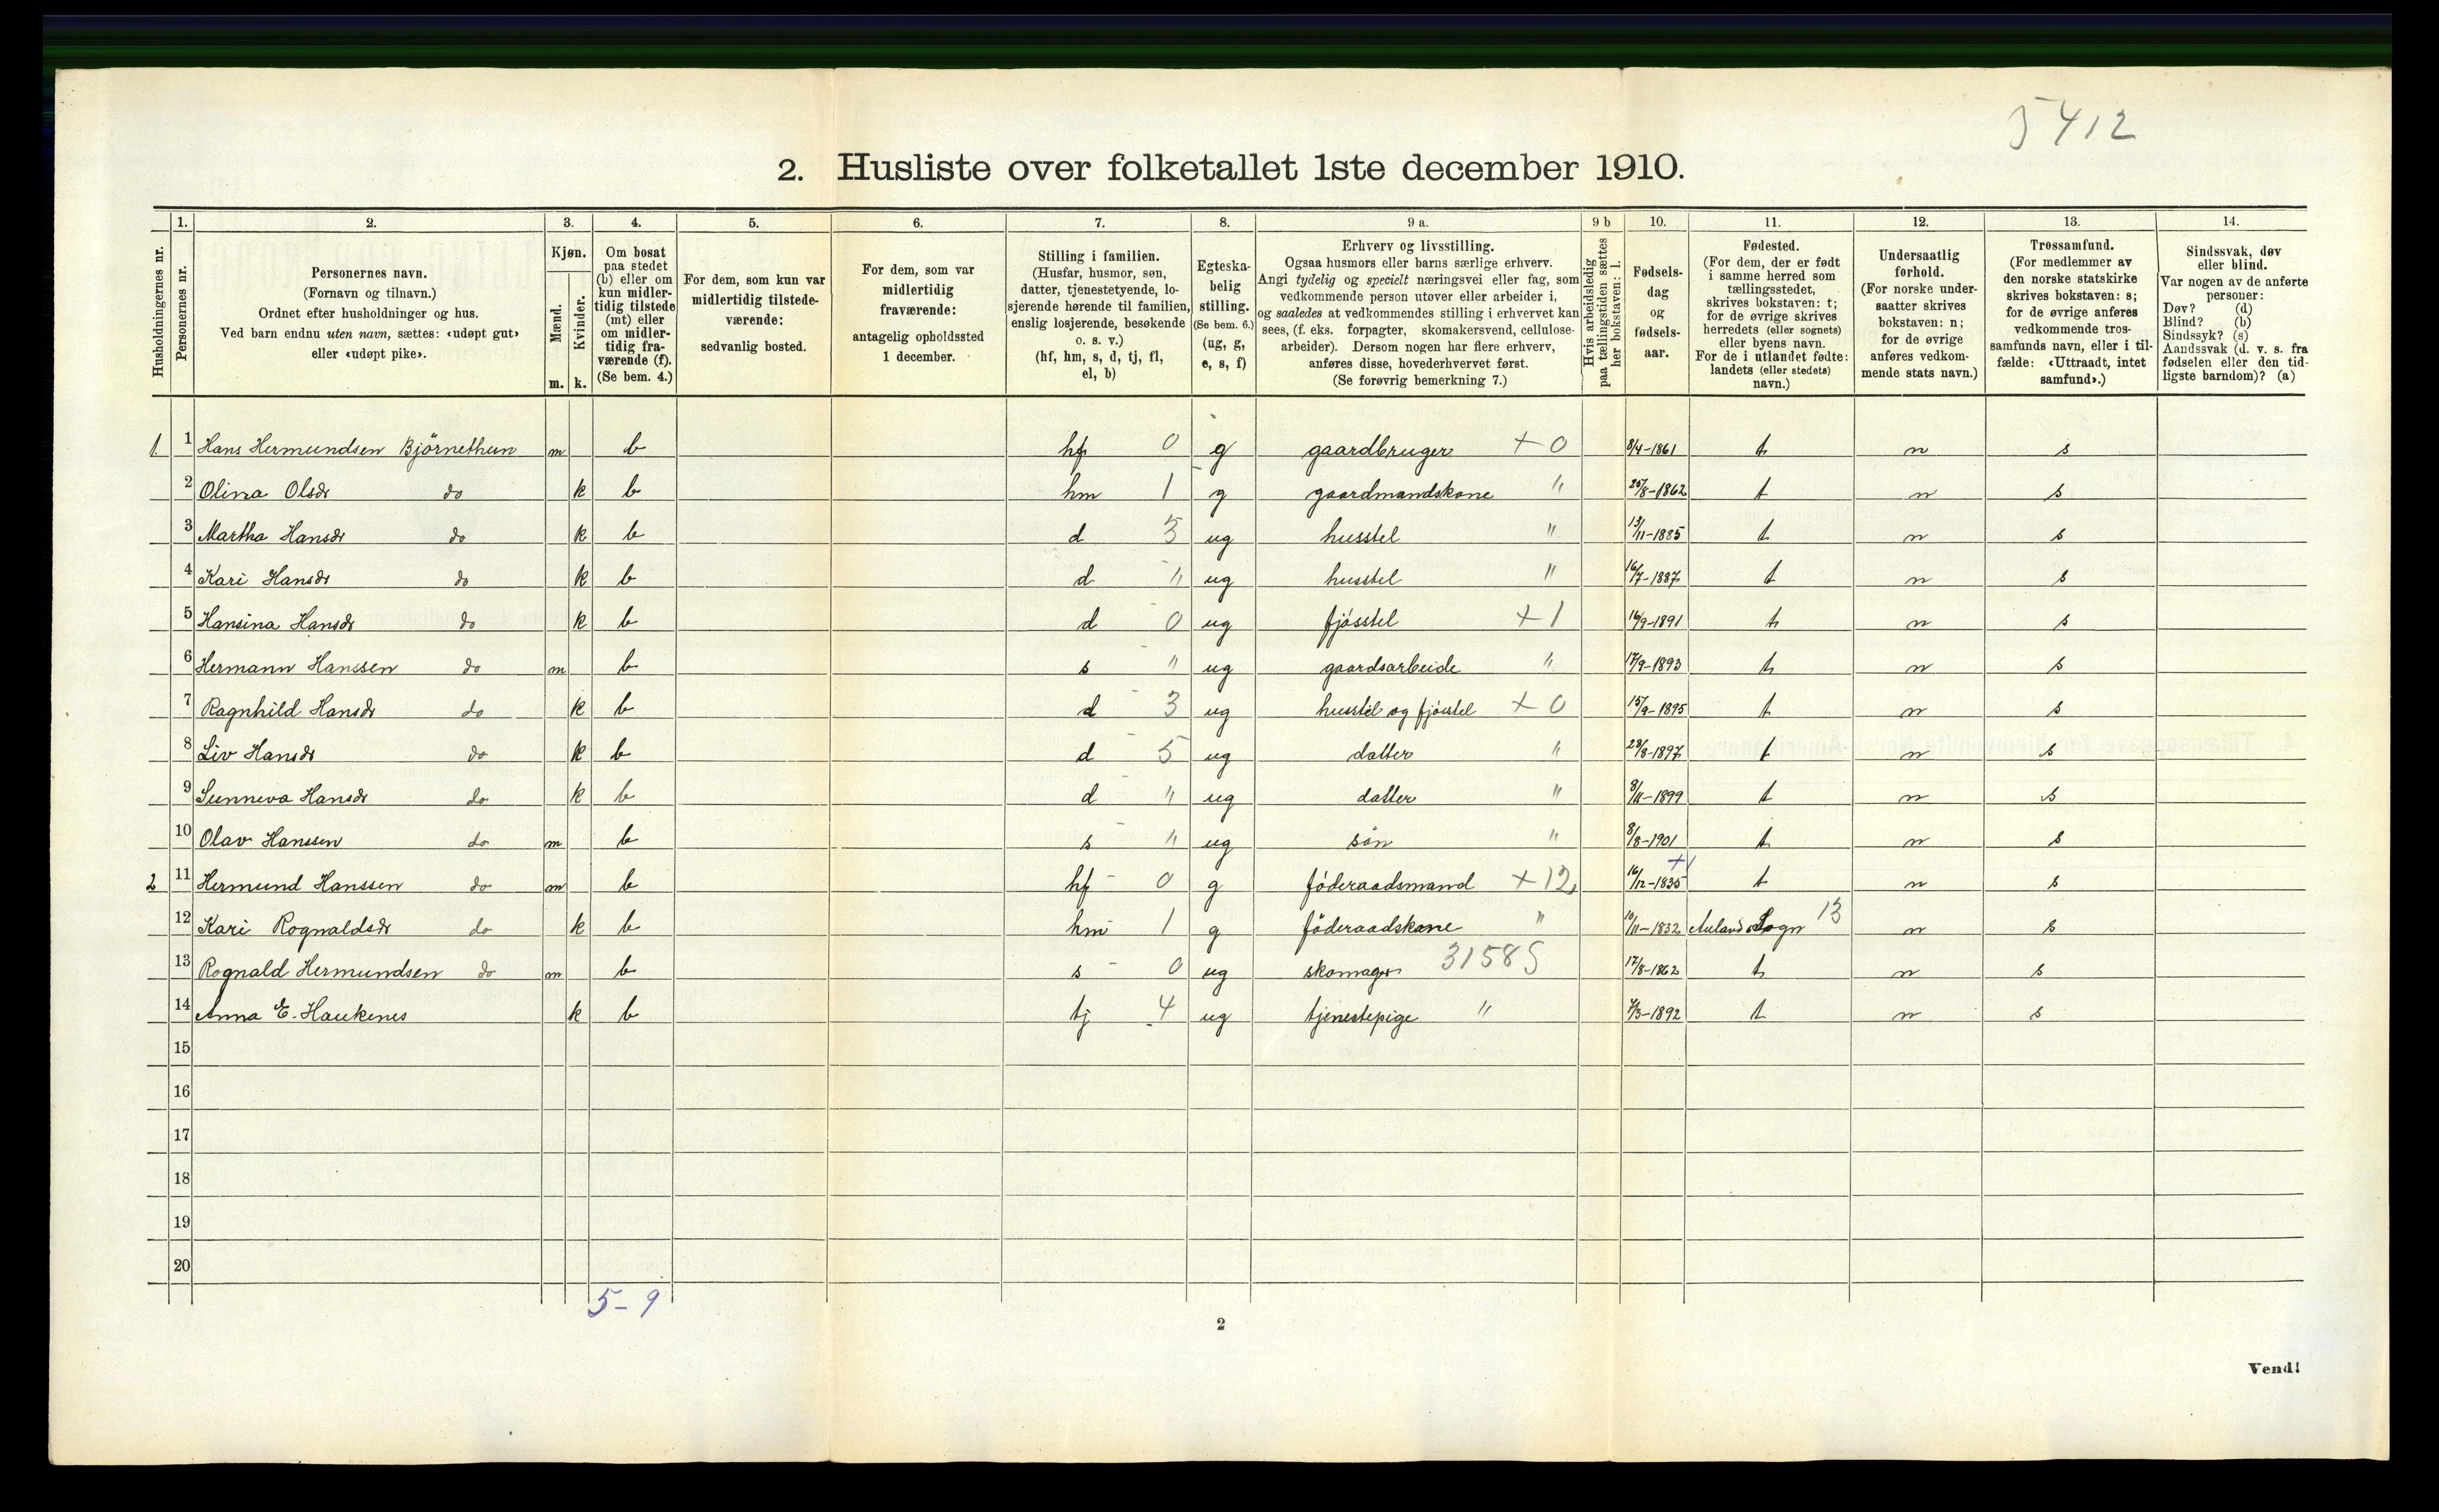 5412
2. Husliste over folketallet 1ste december 1910.
Husholdningernes nr.
1.
Personernes nr.
2.
Personernes navn.
(Fornavn og tilnavn.)
Ordnet efter husholdninger og hus.
Ved barn endnu uten navn, sættes: «udøpt gut»
eller «udøpt pike».
3.
Kjøn.
Mænd.
Kvinder.
m. k.
4.
Om bosat
paa stedet
(b) eller om
kun midler-
tidig tilstede
(mt) eller
om midler-
tidig fra-
værende (f).
(Se bem. 4.)
5.
For dem, som kun var
midlertidig tilstede-
værende:
sedvanlig bosted.
6.
For dem, som var
midlertidig
fraværende:
antagelig opholdssted
1 december.
7.
Stilling i familien.
(Husfar, husmor, søn,
datter, tjenestetyende, lo-
sjerende hørende til familien,
enslig losjerende, besøkende
o. s. v.)
(hf, hm, s, d, tj, fl,
el, b)
8.
Egteska-
belig
stilling.
(Se bem. 6.)
(ug, g,
e, s, f)
9 a.
Erhverv og livsstilling.
Ogsaa husmors eller barns særlige erhverv.
Angi tydelig og specielt næringsvei eller fag, som
vedkommende person utøver eller arbeider i,
og saaledes at vedkommendes stilling i erhvervet kan
sees, (f. eks. forpagter, skomakersvend, cellulose-
arbeider). Dersom nogen har flere erhverv,
anføres disse, hovederhvervet først.
(Se forøvrig bemerkning 7.)
9 b
Hvis arbeidsledig
paa tællingstiden sættes
her bokstaven: l.
10.
Fødsels-
dag
og
fødsels-
aar.
11.
Fødested.
(For dem, der er født
i samme herred som
tællingsstedet,
skrives bokstaven: t;
for de øvrige skrives
herredets (eller sognets)
eller byens navn.
For de i utlandet fødte:
landets (eller stedets)
navn.)
12.
Undersaatlig
forhold.
(For norske under-
saatter skrives
bokstaven: n;
for de øvrige
anføres vedkom-
mende stats navn.)
13.
Trossamfund.
(For medlemmer av
den norske statskirke
skrives bokstaven: s;
for de øvrige anføres
vedkommende tros-
samfunds navn, eller i til-
fælde: «Uttraadt, intet
samfund».)
14.
Sindssvak, døv
eller blind.
Var nogen av de anførte
personer:
Døv? (d)
Blind? (b)
Sindssyk? (s)
Aandssvak (d. v. s. fra
fødselen eller den tid-
ligste barndom)? (a)
1. 1 Hans Hermundsen Björnethun m b hf 0 g gaardbruger + 0 8/4-1861 t n s
2 Olina Olsdr do k b hm 1 g gaardmandskone " 25/8-1862 t n s
3 Martha Hansdr do k b d 5 ug husstel " 13/11-1885 t n s
4 Kari Hansdr do k b d " ug husstel " 16/7-1887 t n s
5 Hansina Hansdr do k b d 0 ug fjósstel + 1 16/9-1891 t n s
6 Hermann Hanssen do m b s " ug gaardsarbeide " 17/9-1893 t n s
7 Ragnhild Hansdr do k b d 3 ug husstel og fjósstel + 0 15/9-1895 t n s
8 Liv Hansdr do k b d 5 ug datter " 28/8-1897 t n s
9 Sunneva Hansdr do k b d " ug datter " 8/11-1899 t n s
10 Olav Hanssen do m b s " ug són " 8/8-1901 t n s
2 11 Hermund Hanssen do m b hf 0 g fóderaadsmand + 12 16/12-1835 +1 t n s
12 Kari Rognaldsdr do k b hm 1 g föderaadskone " 10/11-1832 Aulands Sogn 13 n s
13 Rognald Hermundsen do m b s 0 ug skomager 3158 S 17/8-1862 t n s
14 Anna E. Haukenes k b tj 4 ug tjenestepige " t n s
15
16
17
18
19
20
5-9
2
Vend!